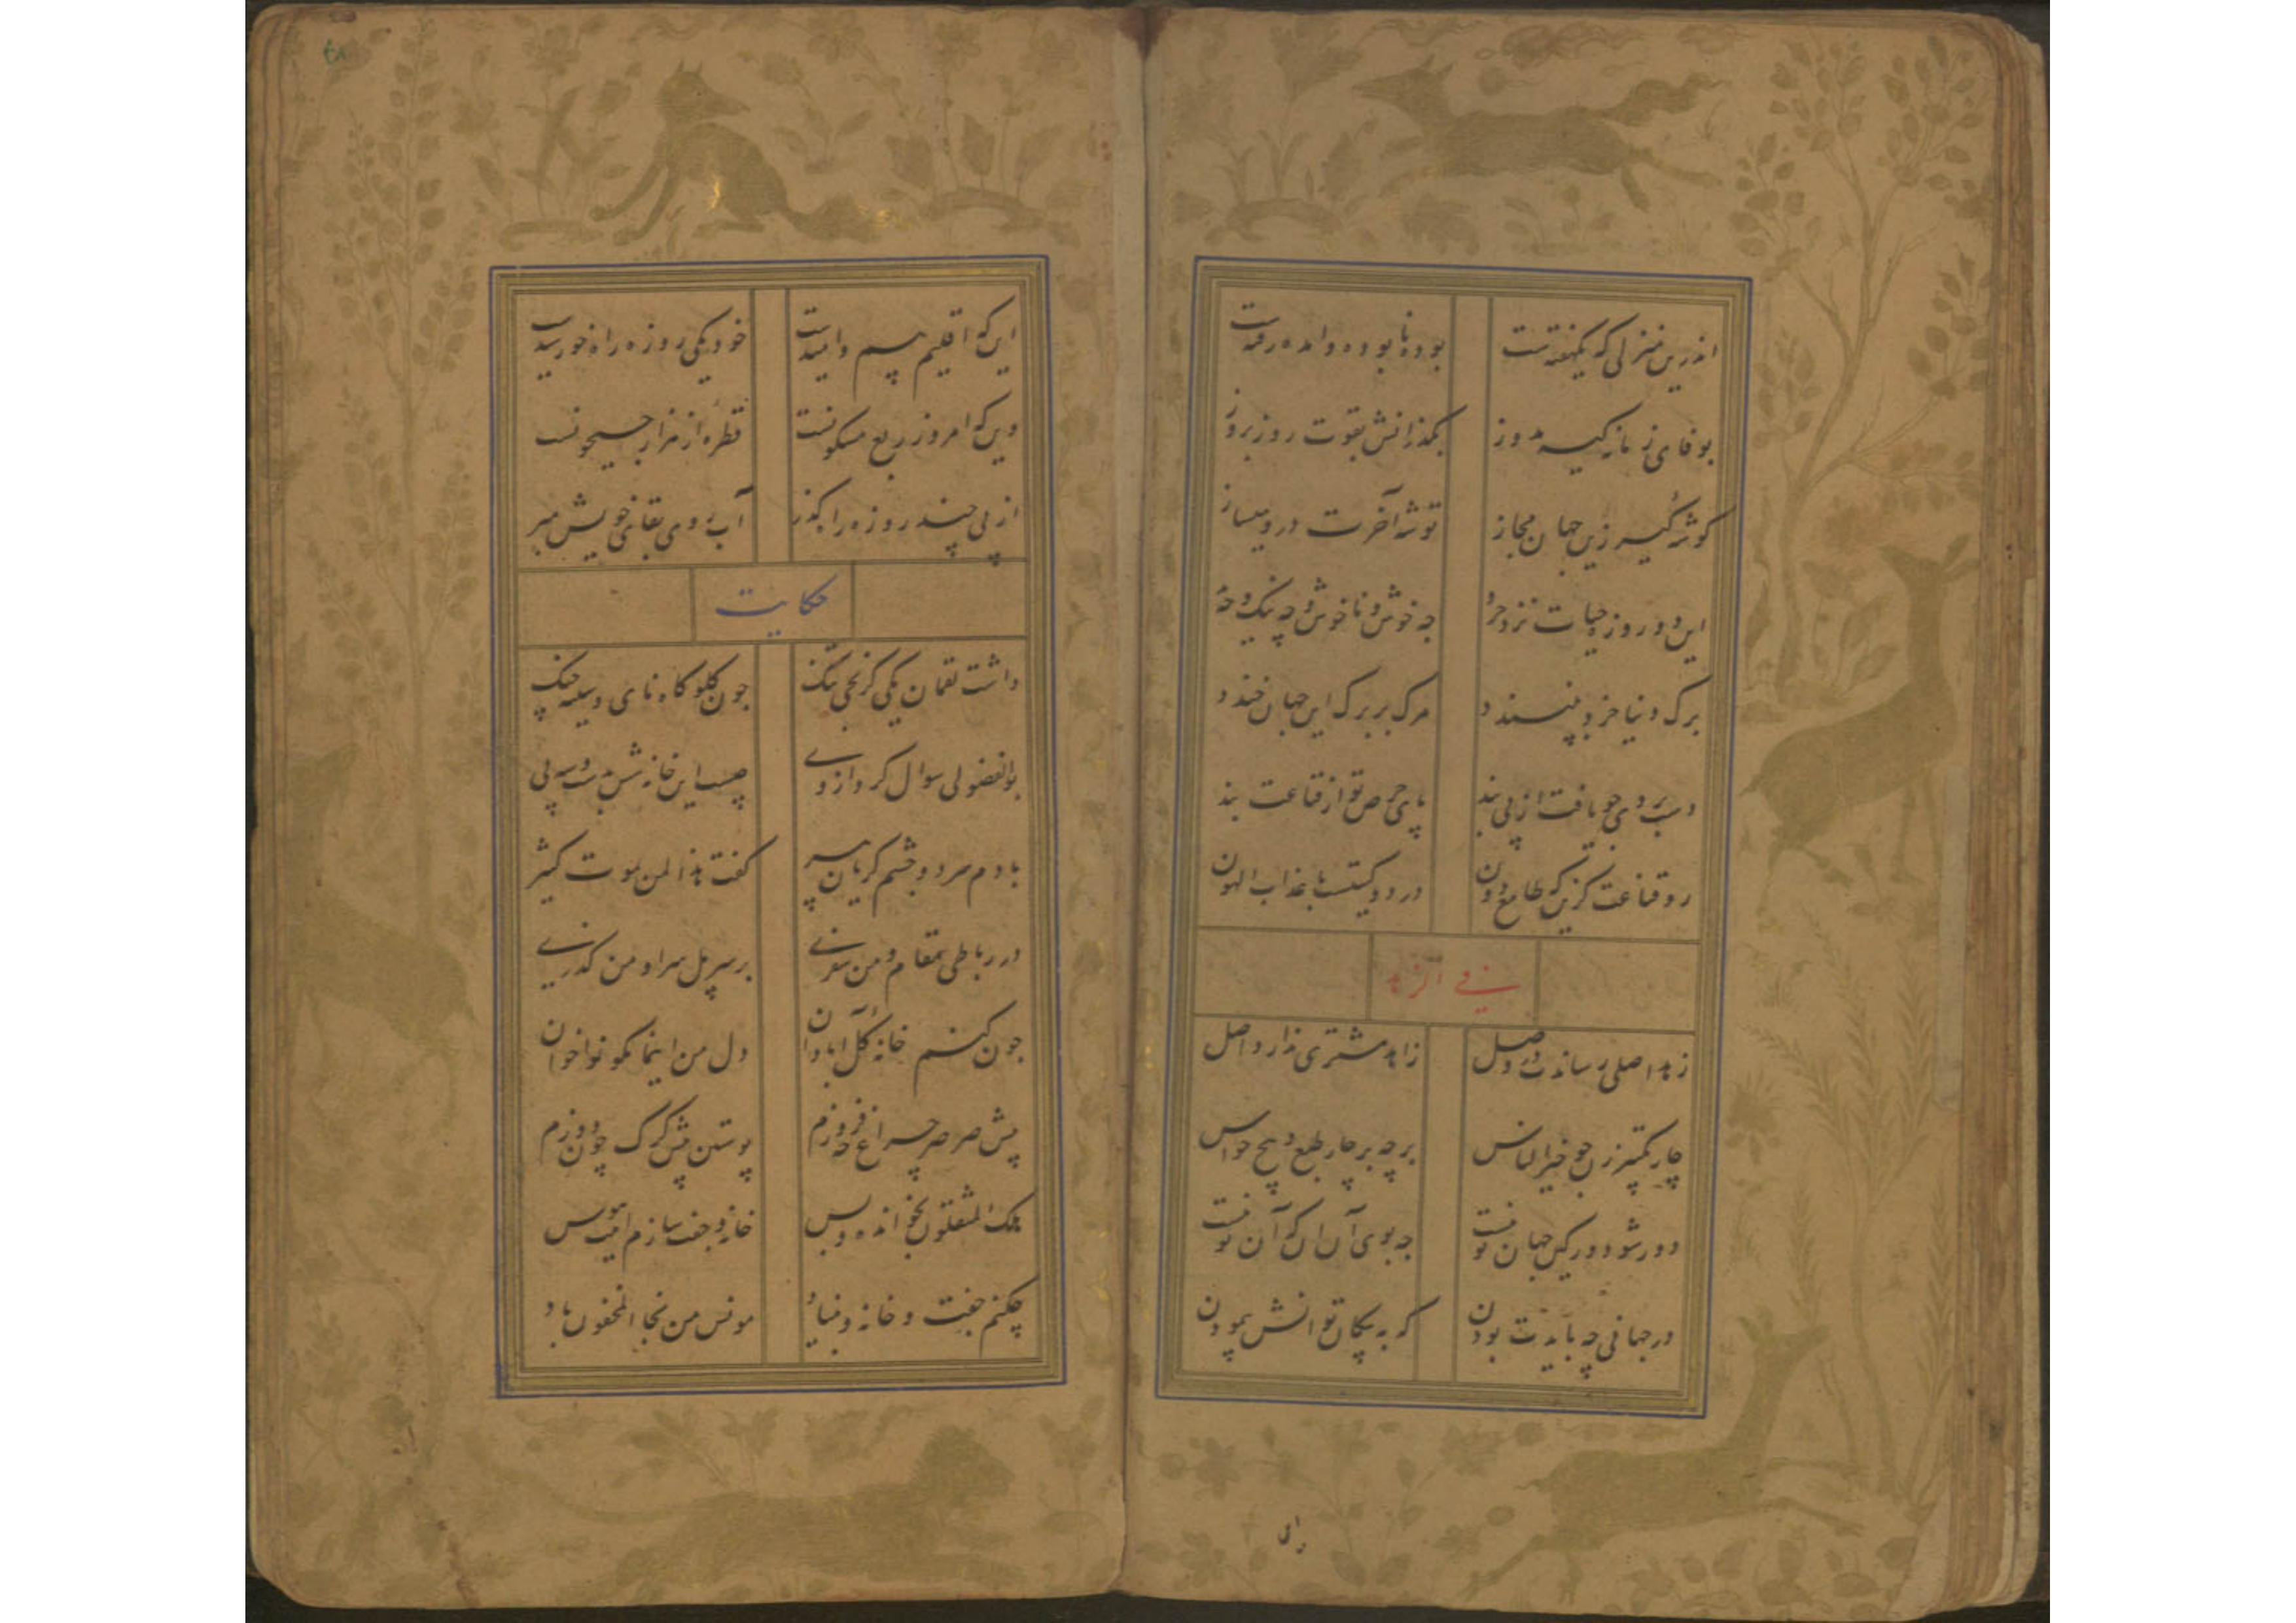 اندرین منزلی که یکهفته ست بوده نابوده و امده رفته ست
بوفای زمانه کیسه مدوز بگذرانش بقوت روز بروز
کوشه کیر زین جهان مجاز توشه آخرت درو میساز
این دو روزه حیات نزد خرد چه خوش و ناخوش و چه نیک و چه
برک دنیا خرد نپسندد مرک بر برک این جهان خندد
چو یافت از پی بند پای حرص تو از قناعت بند
رو قناعت کزین که طامع دون در دو کیتیست با عذاب الهون
فی الزهد
زهد اصلی رساندت در وصل زاهد مشتری ندارد اصل
چار تکبیر زن چو خیر الناس بر چه بر چار طبع و پنج حواس
دور شو دور کین جهان تو نیست چه بوی آن ان که آن تو نیست
در جهانی چه بایدت بودن که به پیکان توانش پیمودن
این که اقلیم بیم و امیدست خود یکی روزه راه خورشیدست
وین که امروز ربع مسکونست قطره از هزار جیحونست
از پی چند روزه را بکذر آب روی بقای خویش مبر
حکایت
داشت لقمان یکی کریجی تنک چون کلوکاه نای و سینه چنک
بوالفضولی سوال کرد از وی چیست این خانه شش بدست و سه پی
با دم سرد و چشم کریان پیر کفت هذا لمن یموت کثیر
در رباطی مقام و من سفری بر سر پل سرا و من کذری
چون کنم خانه کل ابادان دل من اینما تکونوا خوان
پیش صرصر چراغ چه فروزم پوستین پیش کرک چون دوزم
هلک المثقلون بخوانده و بس خانه و جفت سازم اینت هوس
چکنم جفت و خانه و بنیاد مونس من نجا المخفون باد